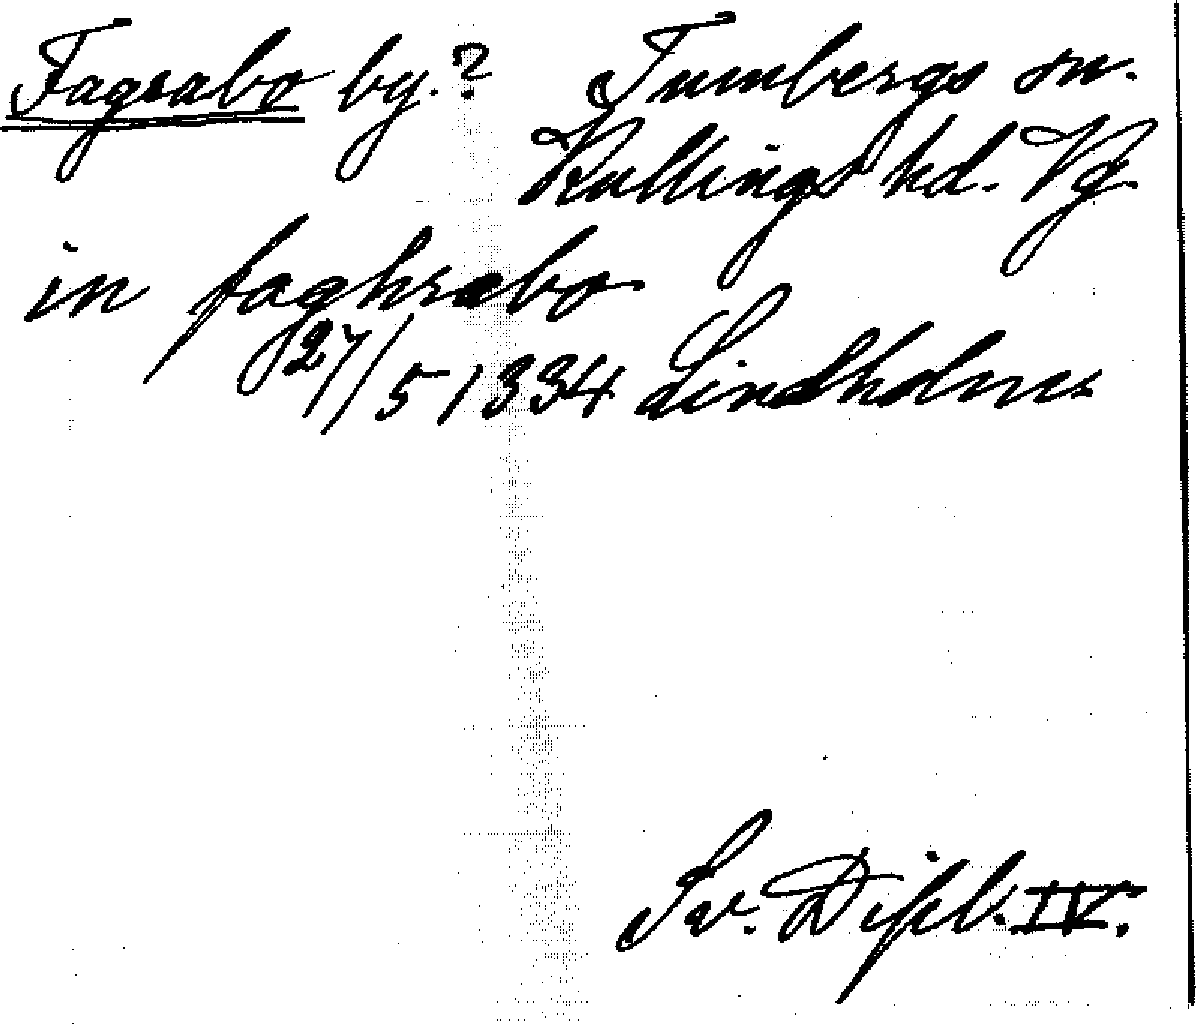 Fagrabo by.? Tumbergs sn.
Kullings hd. Vg.
in faghrabo
27/5 1334 Lindholm
Sv. Dipl. IV.